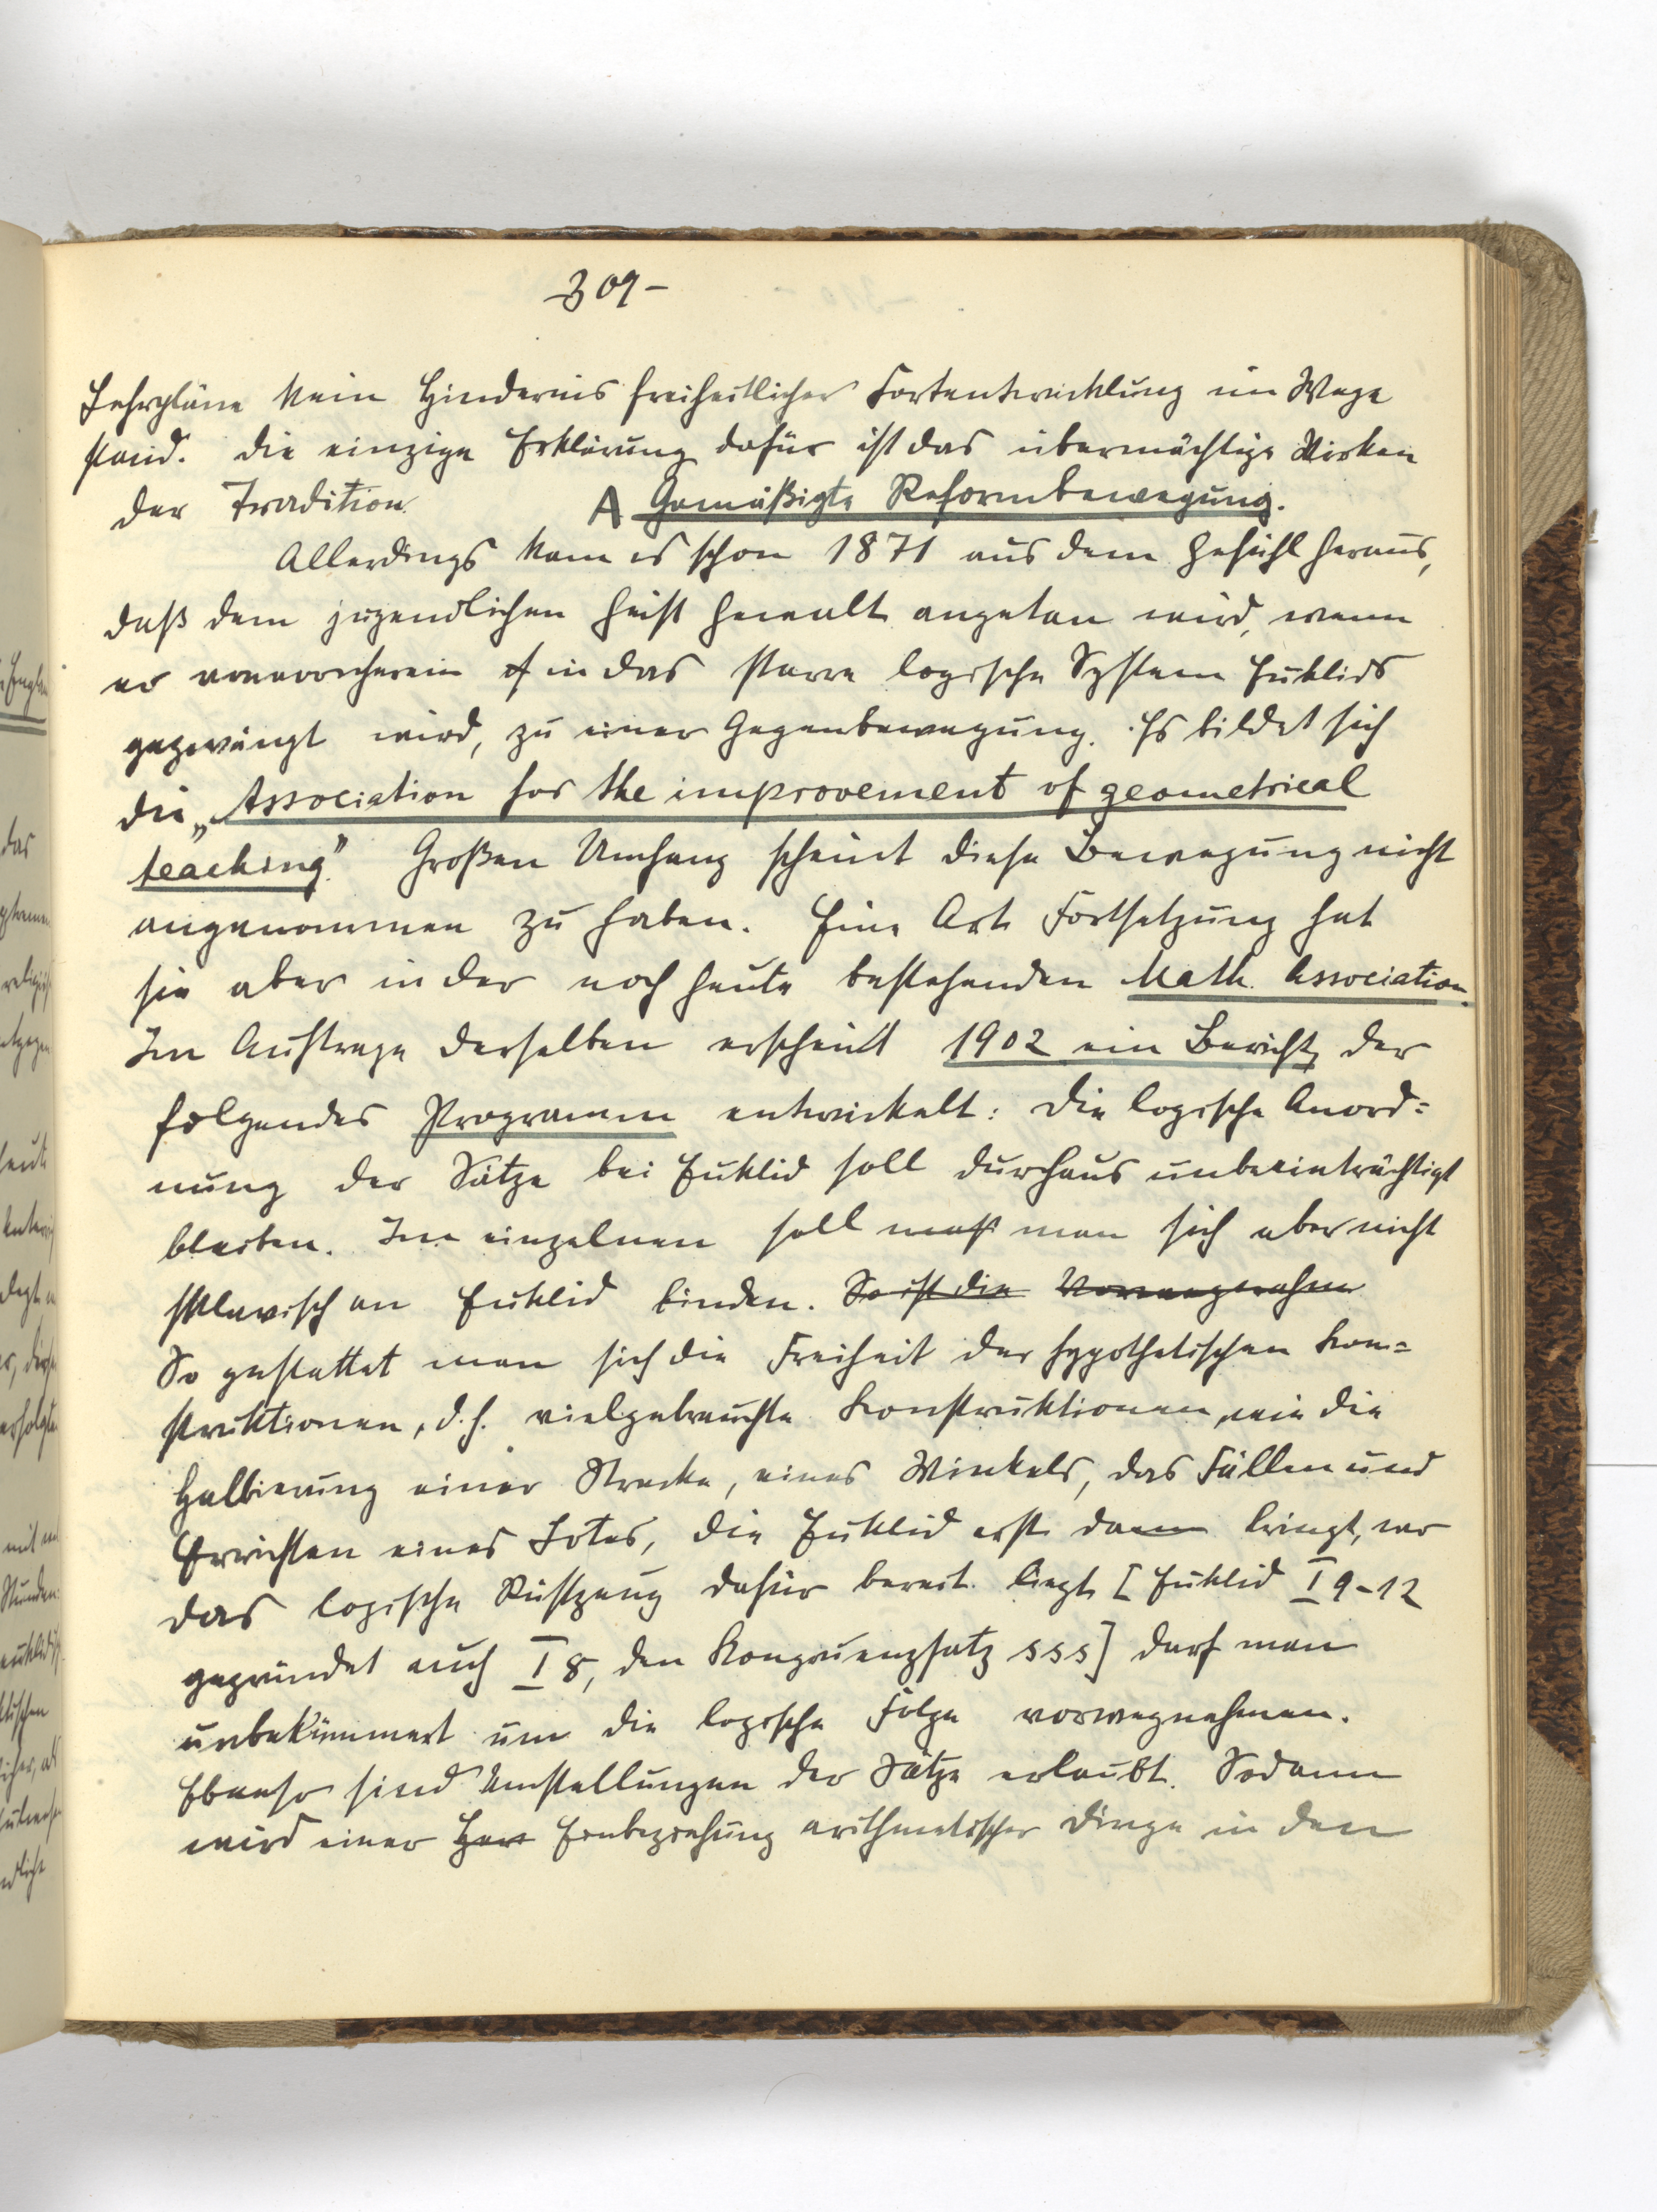 -309-
Lehrpläne kein Hindernis freiheitlicher Fortentwicklung im Wege
stand. Die einzige Erklärung dafür ist das übermächtige Wirken
der Tradition.
A Gemäßigte Reformbewegung.
Allerdings kam es schon 1871 aus dem Gefühl heraus,
daß dem jugendlichen Geist Gewalt angetan wird, wenn
er von vornherein in das starre logische System Euklids
gezwängt wird, zu einer Gegenbewegung. Es bildet sich
die „Association for the improvement of geometrical
teaching." Großen Umfang scheint diese Bewegung nicht
angenommen zu haben. Eine Art Fortsetzung hat
sie aber in der noch heute bestehenden Math. Association.
Im Auftrage derselben erscheint 1902 ein Bericht, der
folgendes Programm entwickelt: Die logische Anord=
nung der Sätze bei Euklid soll durchaus unbeeinträchtigt
bleiben. Im einzelnen soll man sich aber nicht
sklavisch an Euklid binden. So ist die Vorwegnahme
So gestattet man sich die Freiheit der hypothetischen Kon=
struktionen, d.h. vielgebrauchte Konstruktionen, wie die
Halbierung einer Strecke, eines Winkels, das Fällen und
Errichten eines Lotes, die Euklid erst dann bringt, wo
das logische Rüstzeug dafür bereit liegt [Euklid I 9-12
gegründet auf I 8, den Kongruenzsatz sss] darf man
unbekümmert um die logische Folge vorwegnehmen.
Ebenso sind Umstellungen der Sätze erlaubt. Sodann
wird einer Einbeziehung arithmetischer Dinge in den